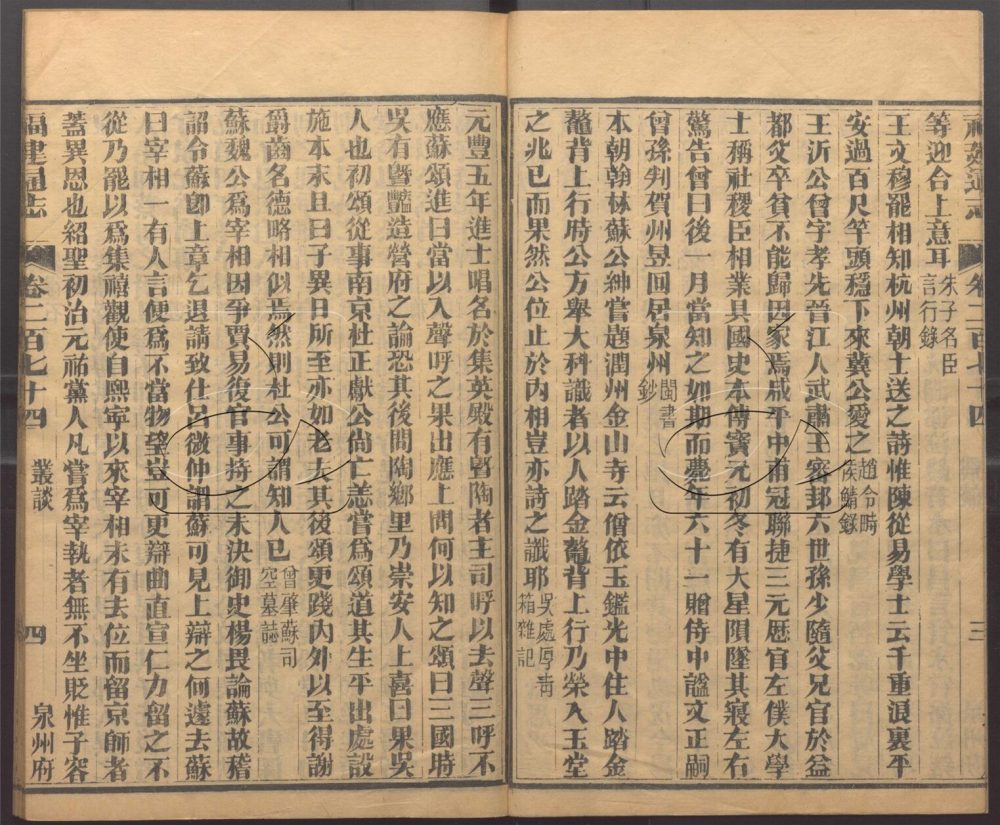 等迎合上意耳朱子名臣言行錄
王文穆罷相知杭州朝士送之詩惟陳從易學士云千重浪裏平
安過百尺竿頭穩下來冀公愛之趙令畤侯鯖錄
王沂公曾字孝先晉江人武肅王審邽六世孫少隨父兄官於益
都父卒貧不能歸因家焉咸平中甫冠聯捷三元歷官左僕大學
士稱社稷臣相業具國史本傳寶元初冬有大星隕墜其寢左右
驚告曾曰後一月當知之如期而薨年六十一贈侍中謚文正嗣
曾孫判賀州昱回居泉州閩書鈔
本朝翰林蘇公紳嘗題潤州金山寺云僧依玉鑑光中住人踏金
鼇背上行時公方舉大科識者以人踏金鼇背上行乃榮入玉堂
之兆已而果然公位止於內相豈亦詩之讖耶吳處厚青箱雜記
元豐五年進士唱名於集英殿有暨陶者主司呼以去聲三呼不
應蘇頌進曰當以入聲呼之果出應上問何以知之頌曰三國時
吳有暨豔造營府之論恐其後問陶鄉里乃崇安人上喜曰果吳
人也初頌從事南京杜正獻公尚亡恙嘗爲頌道其生平出處設
施本末且曰子異日所至亦如老夫其後頌更踐內外以至得謝
爵齒名德略相似焉然則杜公可謂知人已曾肇蘇司空墓誌
蘇魏公爲宰相因爭賈易復官事持之未決御史楊畏論蘇故稽
詔令蘇卽上章乞退請致仕呂微仲謂蘇可見上辯之何遽去蘇
曰宰相一有人言便爲不當物望豈可更辯曲直宣仁力留之不
從乃罷以爲集禧觀使自熙寧以來宰相未有去位而留京師者
蓋異恩也紹聖初治元祐黨人凡嘗爲宰執者無不坐貶惟子容
福建通志 卷二百七十四 叢談 四 泉州府